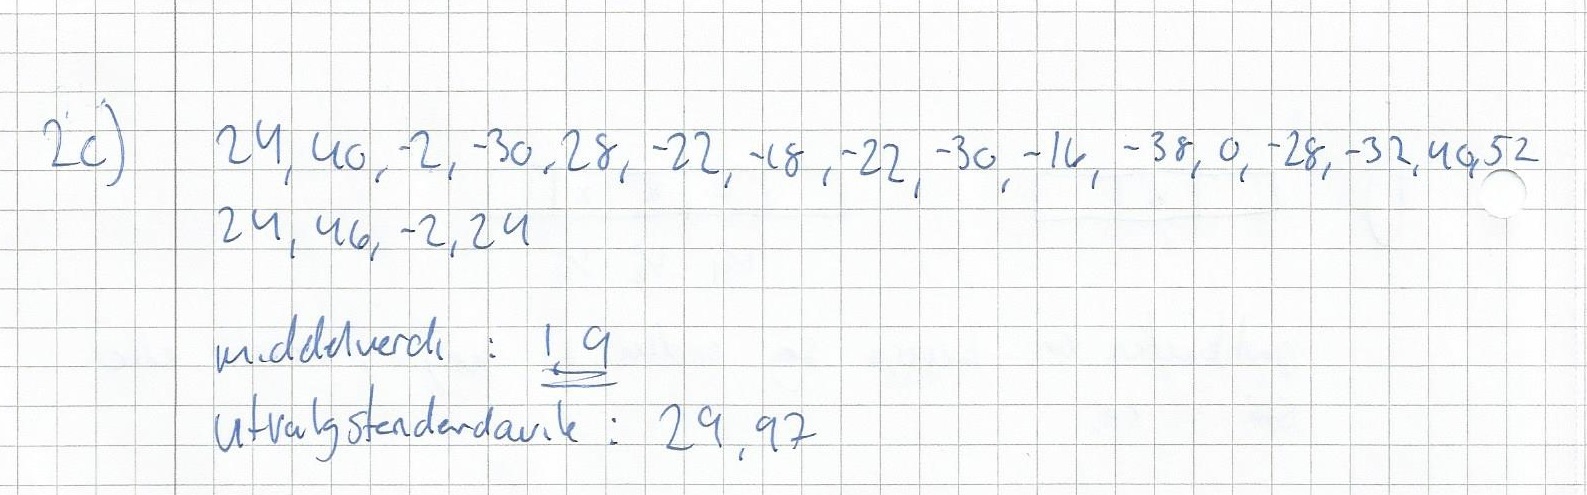 2c) 24, 40, -2, -30, 28, -22, -18, -22, -30, -16, -38, 0, -28, -32, 40, 52
24, 46, -2, 24
middelverdi : 1,9
Utvalgstandardavik : 29,97